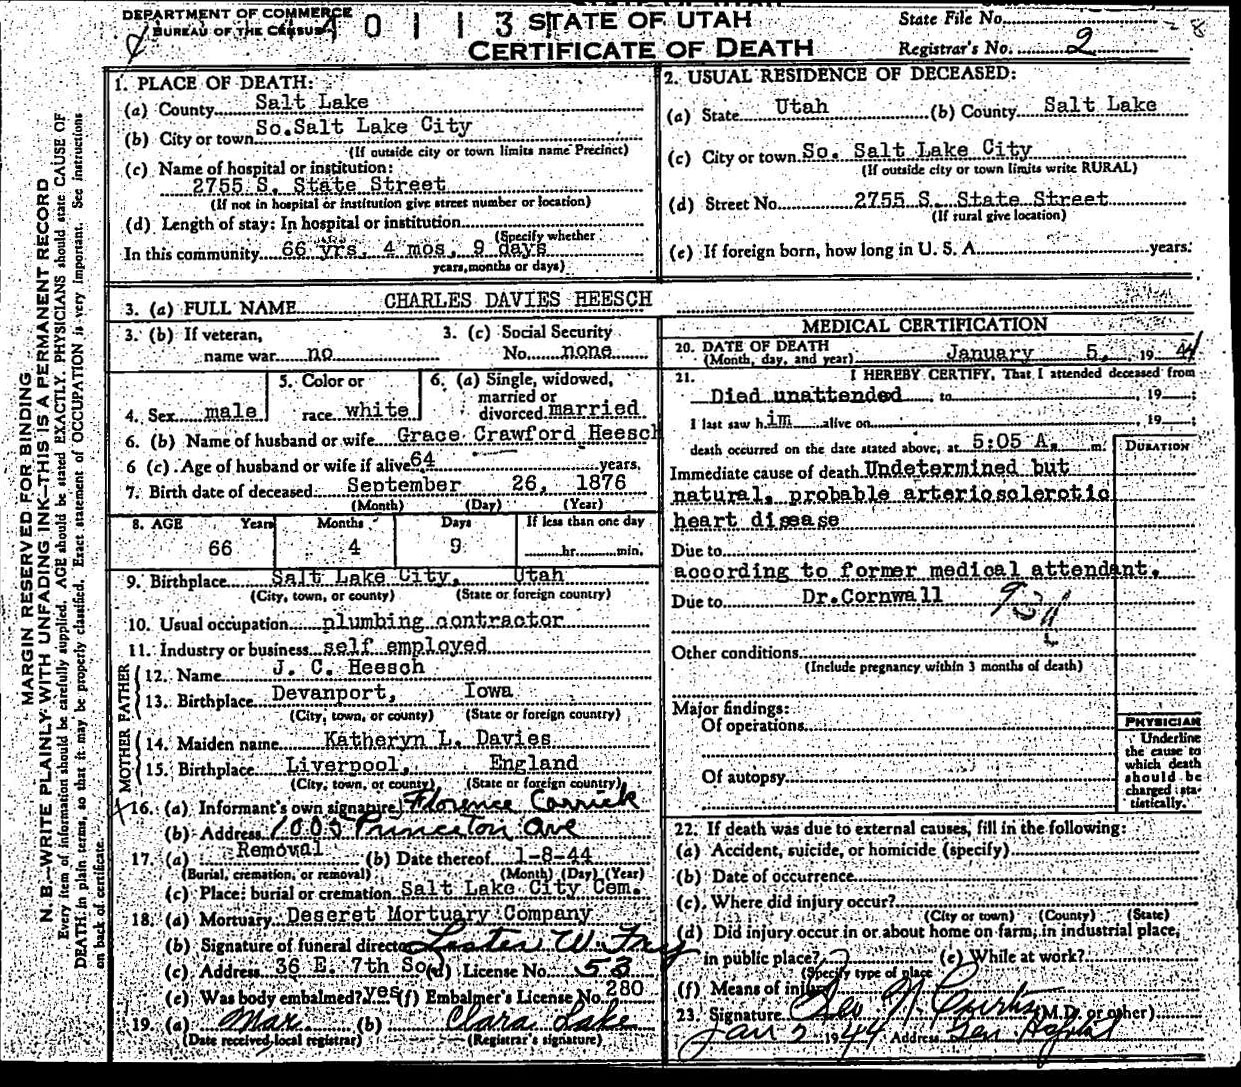 DEPARTMENT OF COMMERCE
BUREAU OF THE CENSUS
0 1 1 3
STATE OF UTAH
CERTIFICATE OF DEATH
State File No.
8
Registrar's No. 2
MARGIN RESERVED FOR BINDING
N. B.—WRITE PLAINLY WITH UNFADING INK—THIS IS A PERMANENT RECORD
Every item of information should be carefully supplied. AGE should be stated EXACTLY. PHYSICIANS should state CAUSE OF
DEATH in plain terms, so that it may be properly classified. Exact statement of OCCUPATION is very important. See instructions
on back of certificate.
1. PLACE OF DEATH:
(a) County Salt Lake
(b) City or town So. Salt Lake City
(If outside city or town limits name Precinct)
(c) Name of hospital or institution:
2755 S. State Street
(If not in hospital or institution give street number or location)
(d) Length of stay: In hospital or institution
(Specify whether
In this community 66 yrs, 4 mos, 9 days
years, months or days)
2. USUAL RESIDENCE OF DECEASED:
(a) State Utah (b) County Salt Lake
(c) City or town So. Salt Lake City
(If outside city or town limits write RURAL)
(d) Street No. 2755 S. State Street
(If rural give location)
(e) If foreign born, how long in U. S. A. years.
3. (a) FULL NAME CHARLES DAVIES HEESCH
3. (b) If veteran,
name war no
3. (c) Social Security
No. none
4. Sex male
5. Color or
race white
6. (a) Single, widowed,
married or
divorced married
6. (b) Name of husband or wife Grace Crawford Heesch
6 (c). Age of husband or wife if alive 64 years.
7. Birth date of deceased September 26, 1876
(Month) (Day) (Year)
8. AGE Years Months Days If less than one day
66 4 9 hr. min.
9. Birthplace Salt Lake City, Utah
(City, town, or county) (State or foreign country)
10. Usual occupation plumbing contractor
11. Industry or business self employed
FATHER
12. Name J. C. Heesch
13. Birthplace Devanport, Iowa
(City, town, or county) (State or foreign country)
MOTHER
14. Maiden name Katheryn L. Davies
15. Birthplace Liverpool, England
(City, town, or county) (State or foreign country)
16. (a) Informant's own signature Florence Carrick
(b) Address 1005 Princeton Ave
17. (a) Removal (b) Date thereof 1-8-44
(Burial, cremation, or removal) (Month) (Day) (Year)
(c) Place: burial or cremation Salt Lake City Cem.
18. (a) Mortuary Deseret Mortuary Company
(b) Signature of funeral director Lester W. Fry
(c) Address 36 E. 7th So. (d) License No. 53
(e) Was body embalmed? yes (f) Embalmer's License No. 280
19. (a) Mar (b) Clara Lake
(Date received local registrar) (Registrar's signature)
MEDICAL CERTIFICATION
20. DATE OF DEATH
(Month, day, and year) January 5, 1944
21. I HEREBY CERTIFY, That I attended deceased from
Died unattended to , 19 ;
I last saw him alive on , 19 ;
death occurred on the date stated above, at 5:05 A. m.
DURATION
Immediate cause of death Undetermined but
natural, probable arteriosclerotic
heart disease
Due to
according to former medical attendant.
Due to Dr. Cornwall
Other conditions
(Include pregnancy within 3 months of death)
Major findings:
Of operations
Of autopsy
PHYSICIAN
Underline
the cause to
which death
should be
charged sta-
tistically.
22. If death was due to external causes, fill in the following:
(a) Accident, suicide, or homicide (specify)
(b) Date of occurrence
(c) Where did injury occur?
(City or town) (County) (State)
(d) Did injury occur in or about home on farm, in industrial place,
in public place? (e) While at work?
(Specify type of place
(f) Means of injury
23. Signature Geo N. Curtis (M.D. or other)
Jan 5 1944 Address Gen Hospital